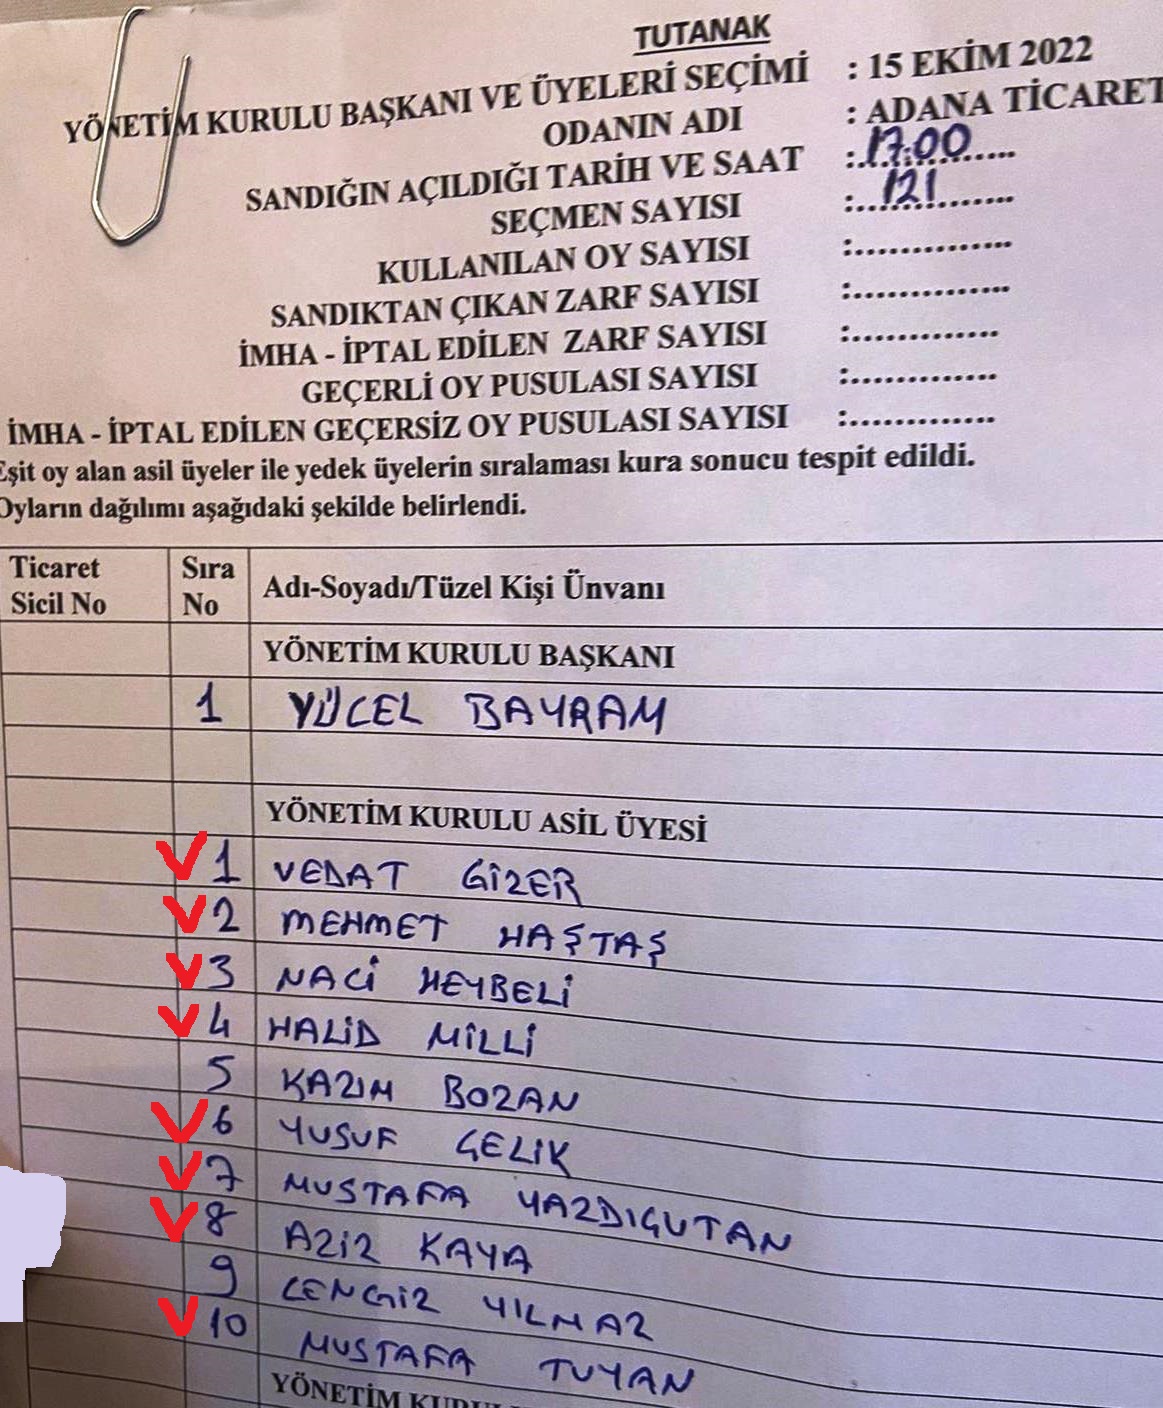 TUTANAK
YÖNETİM KURULU BAŞKANI VE ÜYELERİ SEÇİMİ : 15 EKİM 2022
ODANIN ADI : ADANA TİCARET
SANDIĞIN AÇILDIĞI TARİH VE SAAT : 17:00
SEÇMEN SAYISI : 121
KULLANILAN OY SAYISI :...............
SANDIKTAN ÇIKAN ZARF SAYISI :...............
İMHA - İPTAL EDİLEN ZARF SAYISI :..............
GEÇERLİ OY PUSULASI SAYISI :..............
İMHA - İPTAL EDİLEN GEÇERSİZ OY PUSULASI SAYISI :..............
Eşit oy alan asil üyeler ile yedek üyelerin sıralaması kura sonucu tespit edildi.
Oyların dağılımı aşağıdaki şekilde belirlendi.
Ticaret Sicil No Sıra No Adı-Soyadı/Tüzel Kişi Ünvanı
YÖNETİM KURULU BAŞKANI
1 YÜCEL BAYRAM
YÖNETİM KURULU ASİL ÜYESİ
1 VEDAT GİZER
2 MEHMET HAŞTAŞ
3 NACİ HEYBELİ
4 HALİD MİLLİ
5 KAZIM BOZAN
6 YUSUF ÇELİK
7 MUSTAFA YAZDIGUTAN
8 AZİZ KAYA
9 CENGİZ YILMAZ
10 MUSTAFA TUYAN
YÖNETİM